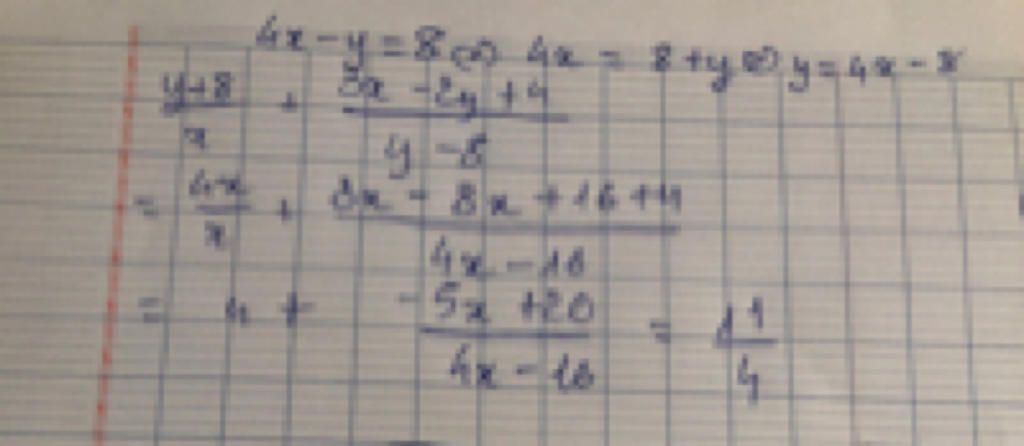 4x - y = 8 ⇔ 4x = 8 + y ⇔ y = 4x - 8
y+8/x + 3x - 2y + 4/y - 8
= 4x/x + 3x - 8x + 16 + 4/4x - 16
= 4 + -5x + 20/4x - 16 = 11/4